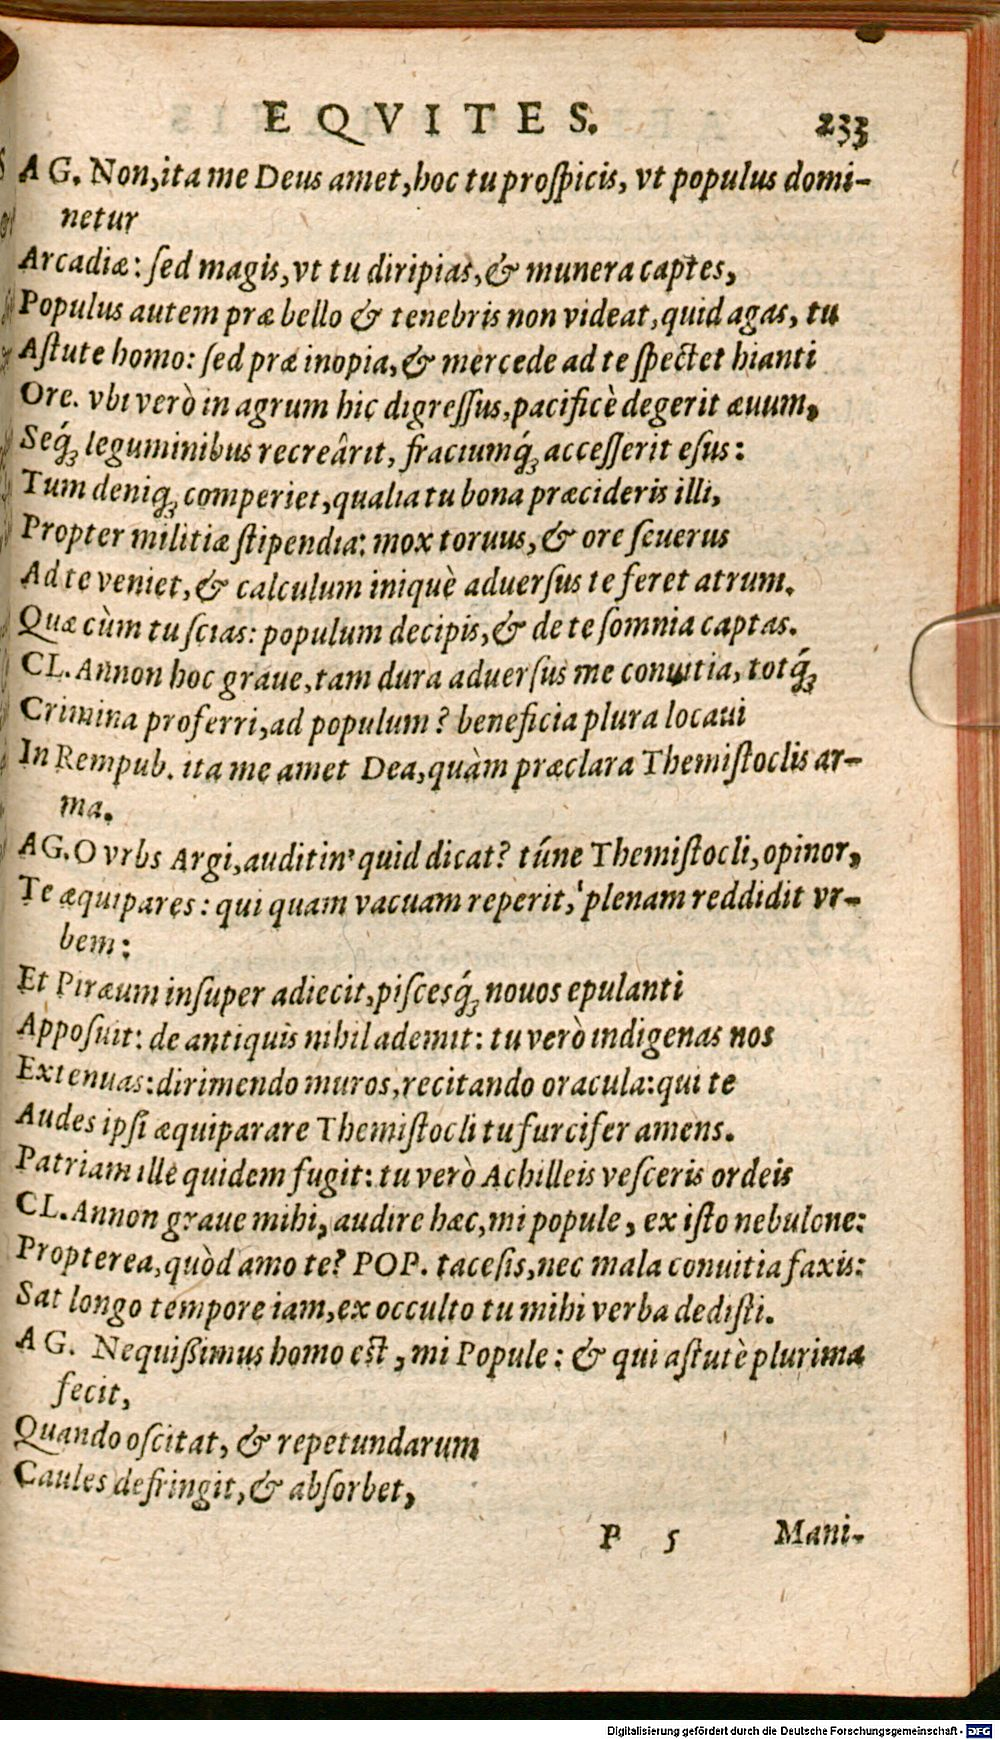 EQVITES. 233
AG. Non, ita me Deus amet, hoc tu proſpicis, vt populus domi-
netur
Arcadiæ: ſed magis, vt tu diripias, & munera captes,
Populus autem præ bello & tenebris non videat, quid agas, tu
Aſtute homo: ſed præ inopia, & mercede ad te ſpectet hianti
Ore. vbi verò in agrum hic digreſſus, pacificè degerit æuum,
Seq́ꝫ leguminibus recreârit, fractumq́ꝫ acceſſerit eſus:
Tum deniqꝫ comperiet, qualia tu bona præcideris illi,
Propter militiæ ſtipendia: mox toruus, & ore ſeuerus
Ad te veniet, & calculum iniquè aduerſus te feret atrum.
Quæ cùm tu ſcias: populum decipis, & de te ſomnia captas.
CL. Annon hoc graue, tam dura aduerſus me conuitia, totq́ꝫ
Crimina proferri, ad populum? beneficia plura locaui
In Rempub. ita me amet Dea, quàm præclara Themiſtoclis ar-
ma.
AG. O vrbs Argi, auditin' quid dicat? túne Themiſtocli, opinor,
Te æquipares: qui quam vacuam reperit, plenam reddidit vr-
bem:
Et Piræum inſuper adiecit, piſcesq́ꝫ nouos epulanti
Appoſuit: de antiquis nihil ademit: tu verò indigenas nos
Extenuas: dirimendo muros, recitando oracula: qui te
Audes ipſi æquiparare Themiſtocli tu furcifer amens.
Patriam ille quidem fugit: tu verò Achilleis veſceris ordeis
CL. Annon graue mihi, audire hæc, mi popule, ex iſto nebulone:
Propterea, quòd amo te? POP. taceſis, nec mala conuitia faxis:
Sat longo tempore iam, ex occulto tu mihi verba dediſti.
AG. Nequißimus homo eſt, mi Popule: & qui aſtutè plurima
fecit,
Quando oſcitat, & repetundarum
Caules defringit, & abſorbet,
P 5 Mani-
Digitalisierung gefördert durch die Deutsche Forschungsgemeinschaft - DFG